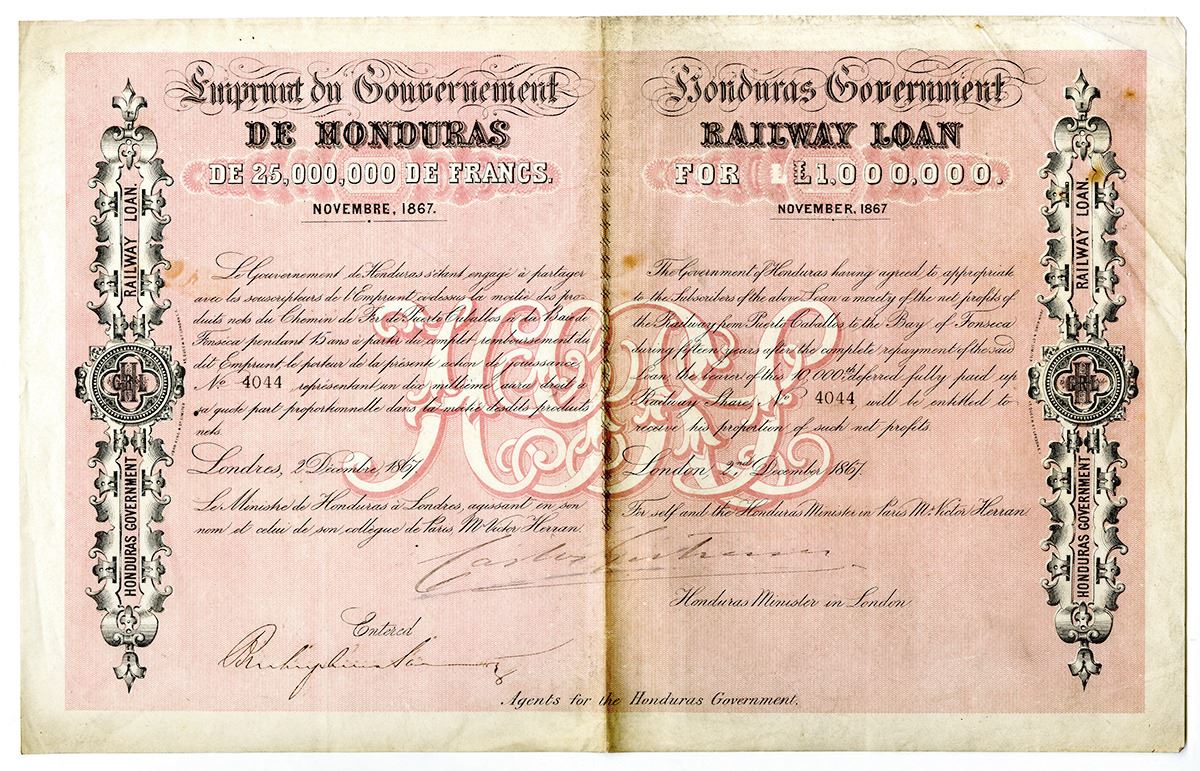 Emprunt du Gouvernement
DE HONDURAS
DE 25,000,000 DE FRANCS.
NOVEMBRE, 1867.
Le Gouvernement de Honduras s'étant engagé à partager
avec les souscripteurs de l'Emprunt ci-dessus la moitié des pro-
duits nets du Chemin de Fer de Puerto Caballos à la Baie de
Fonseca pendant 15 ans à partir du complet remboursement du
dit Emprunt, le porteur de la présente action de jouissance
No 4044 représentant un dix millième aura droit à
sa quote part proportionnelle dans la moitié desdits produits
nets.
Londres, 2 Décembre, 1867.
Le Ministre de Honduras à Londres, agissant en son
nom et celui de son collègue de Paris, Mr Victor Herran.
Entered
Honduras Government
RAILWAY LOAN
FOR £1,000,000.
NOVEMBER, 1867
The Government of Honduras having agreed to appropriate
to the Subscribers of the above Loan a moiety of the net profits of
the Railway from Puerto Caballos to the Bay of Fonseca
during fifteen years after the complete repayment of the said
Loan, the bearer of this 10,000th deferred fully paid up
Railway Share No 4044 will be entitled to
receive his proportion of such net profits.
London, 2nd December 1867.
For self and the Honduras Minister in Paris Mr Victor Herran
Honduras Minister in London
Agents for the Honduras Government.
HGRL
HONDURAS GOVERNMENT RAILWAY LOAN.
HONDURAS GOVERNMENT RAILWAY LOAN.